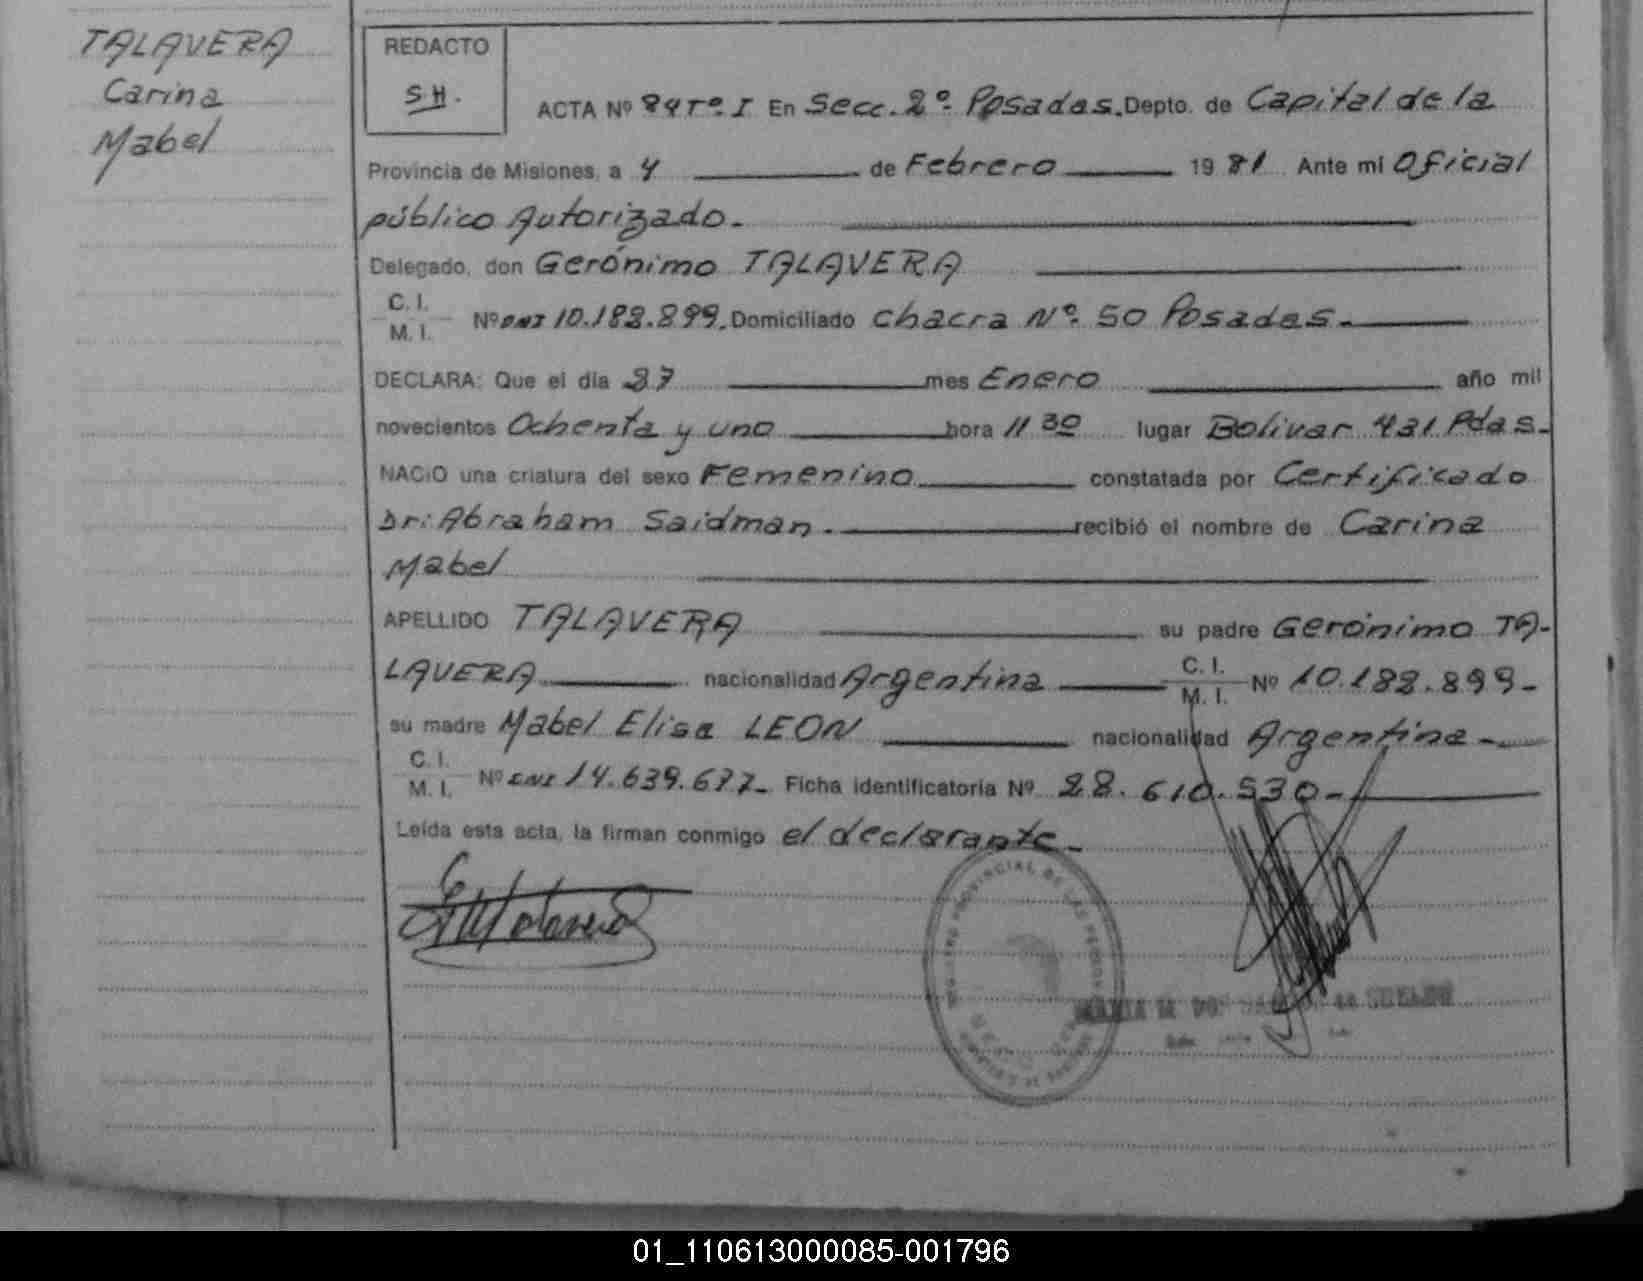 TALAVERA
Carina
Mabel
REDACTO
S.H.
ACTA Nº 84 Tº I En Secc. 2º Posadas. Depto. de Capital de la
Provincia de Misiones, a 4 de Febrero 1981 Ante mi Oficial
público Autorizado.
Delegado, don Gerónimo TALAVERA
C. I.
M. I. Nº DNI 10.182.899. Domiciliado chacra Nº 50 Posadas.
DECLARA: Que el dia 27 mes Enero año mil
novecientos Ochenta y uno hora 11 30 lugar Bolivar 431 Pdas.
NACIO una criatura del sexo Femenino constatada por Certificado
Dr: Abraham Saidman. recibió el nombre de Carina
Mabel
APELLIDO TALAVERA su padre Gerónimo TA-
LAVERA nacionalidad Argentina C. I. M. I. Nº 10.182.899-
su madre Mabel Elisa LEON nacionalidad Argentina-
C. I.
M. I. Nº DNI 14.639.677- Ficha identificatoria Nº 28.610.530-
Leída esta acta, la firman conmigo el declarante-
PROVINCIAL DE LAS PERSONAS
01_110613000085-001796